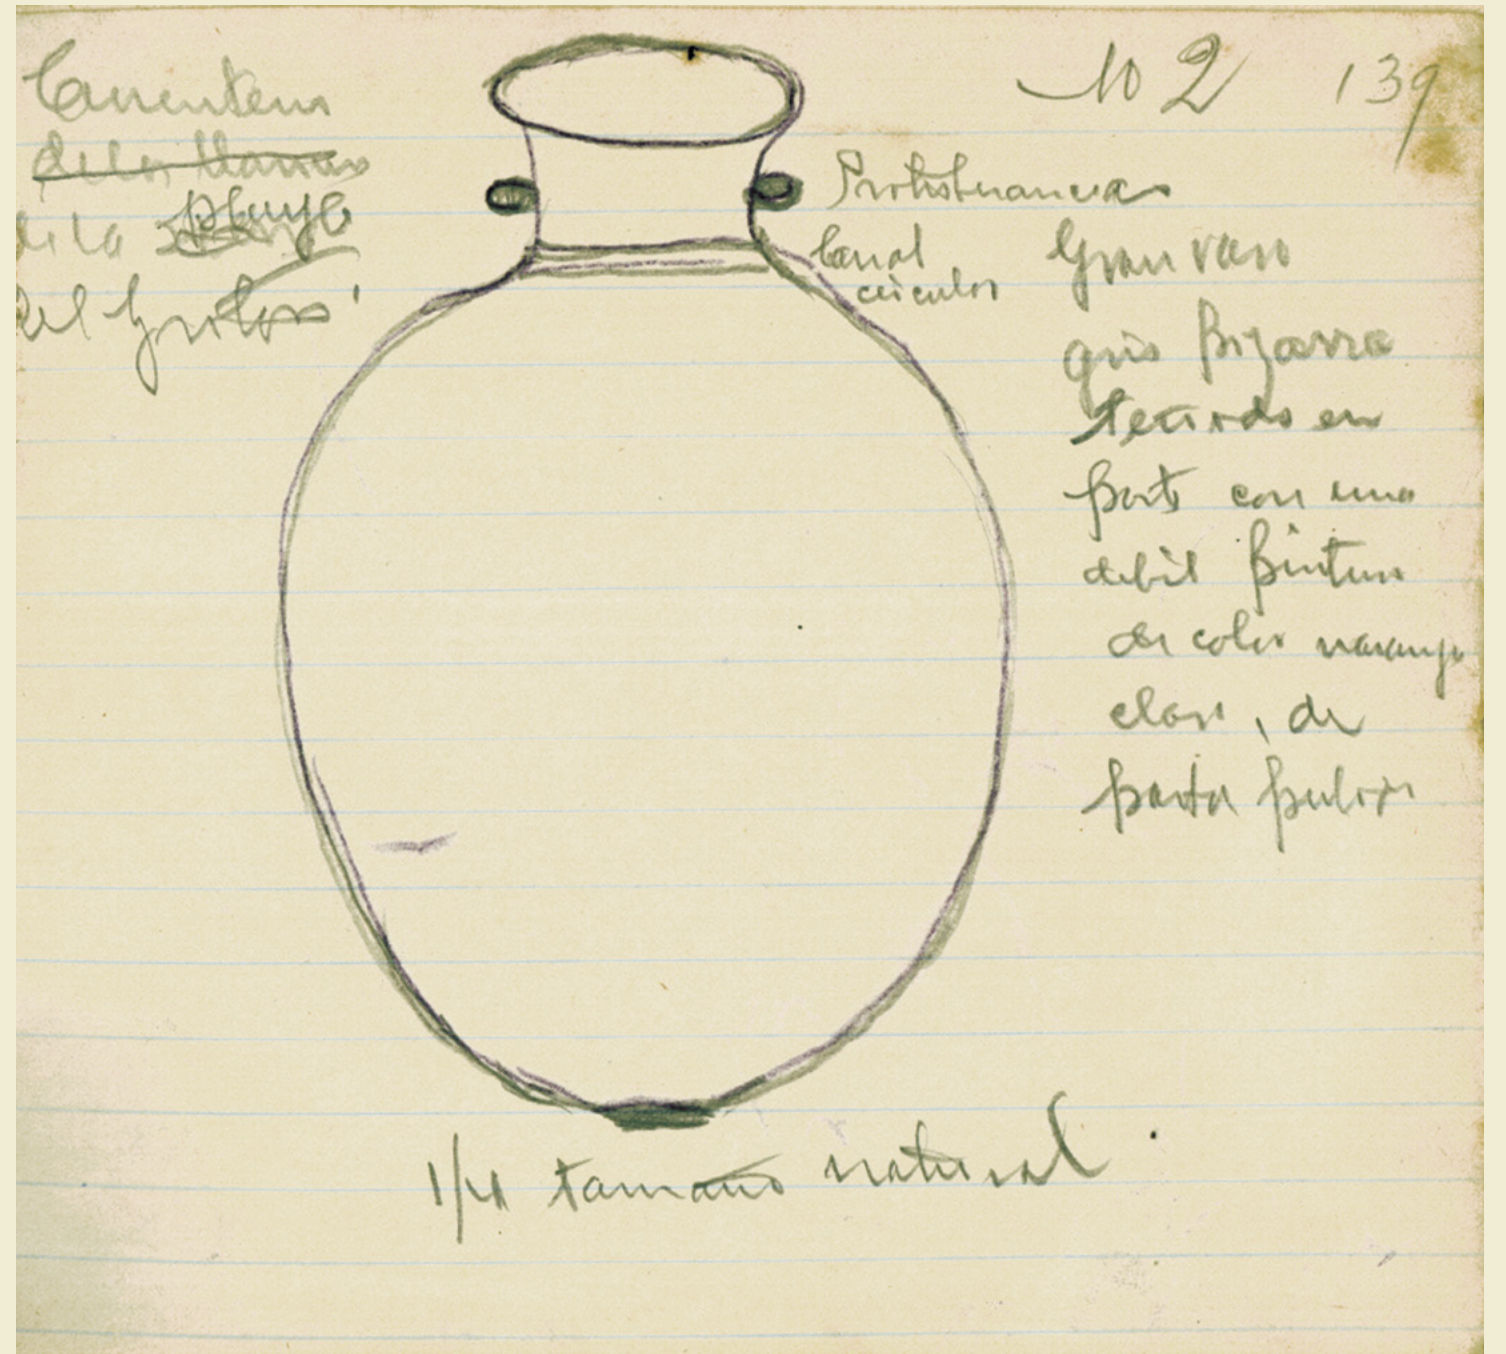 No 2 139
Cementerio
de los llanos
de la playa
del
Protuberancias
Canal
circular
Gran vaso
gris Bizarro
teñido en
parte con una
debil pintura
de color naranja
claro, de
pasta pulida
1/4 tamaño natural